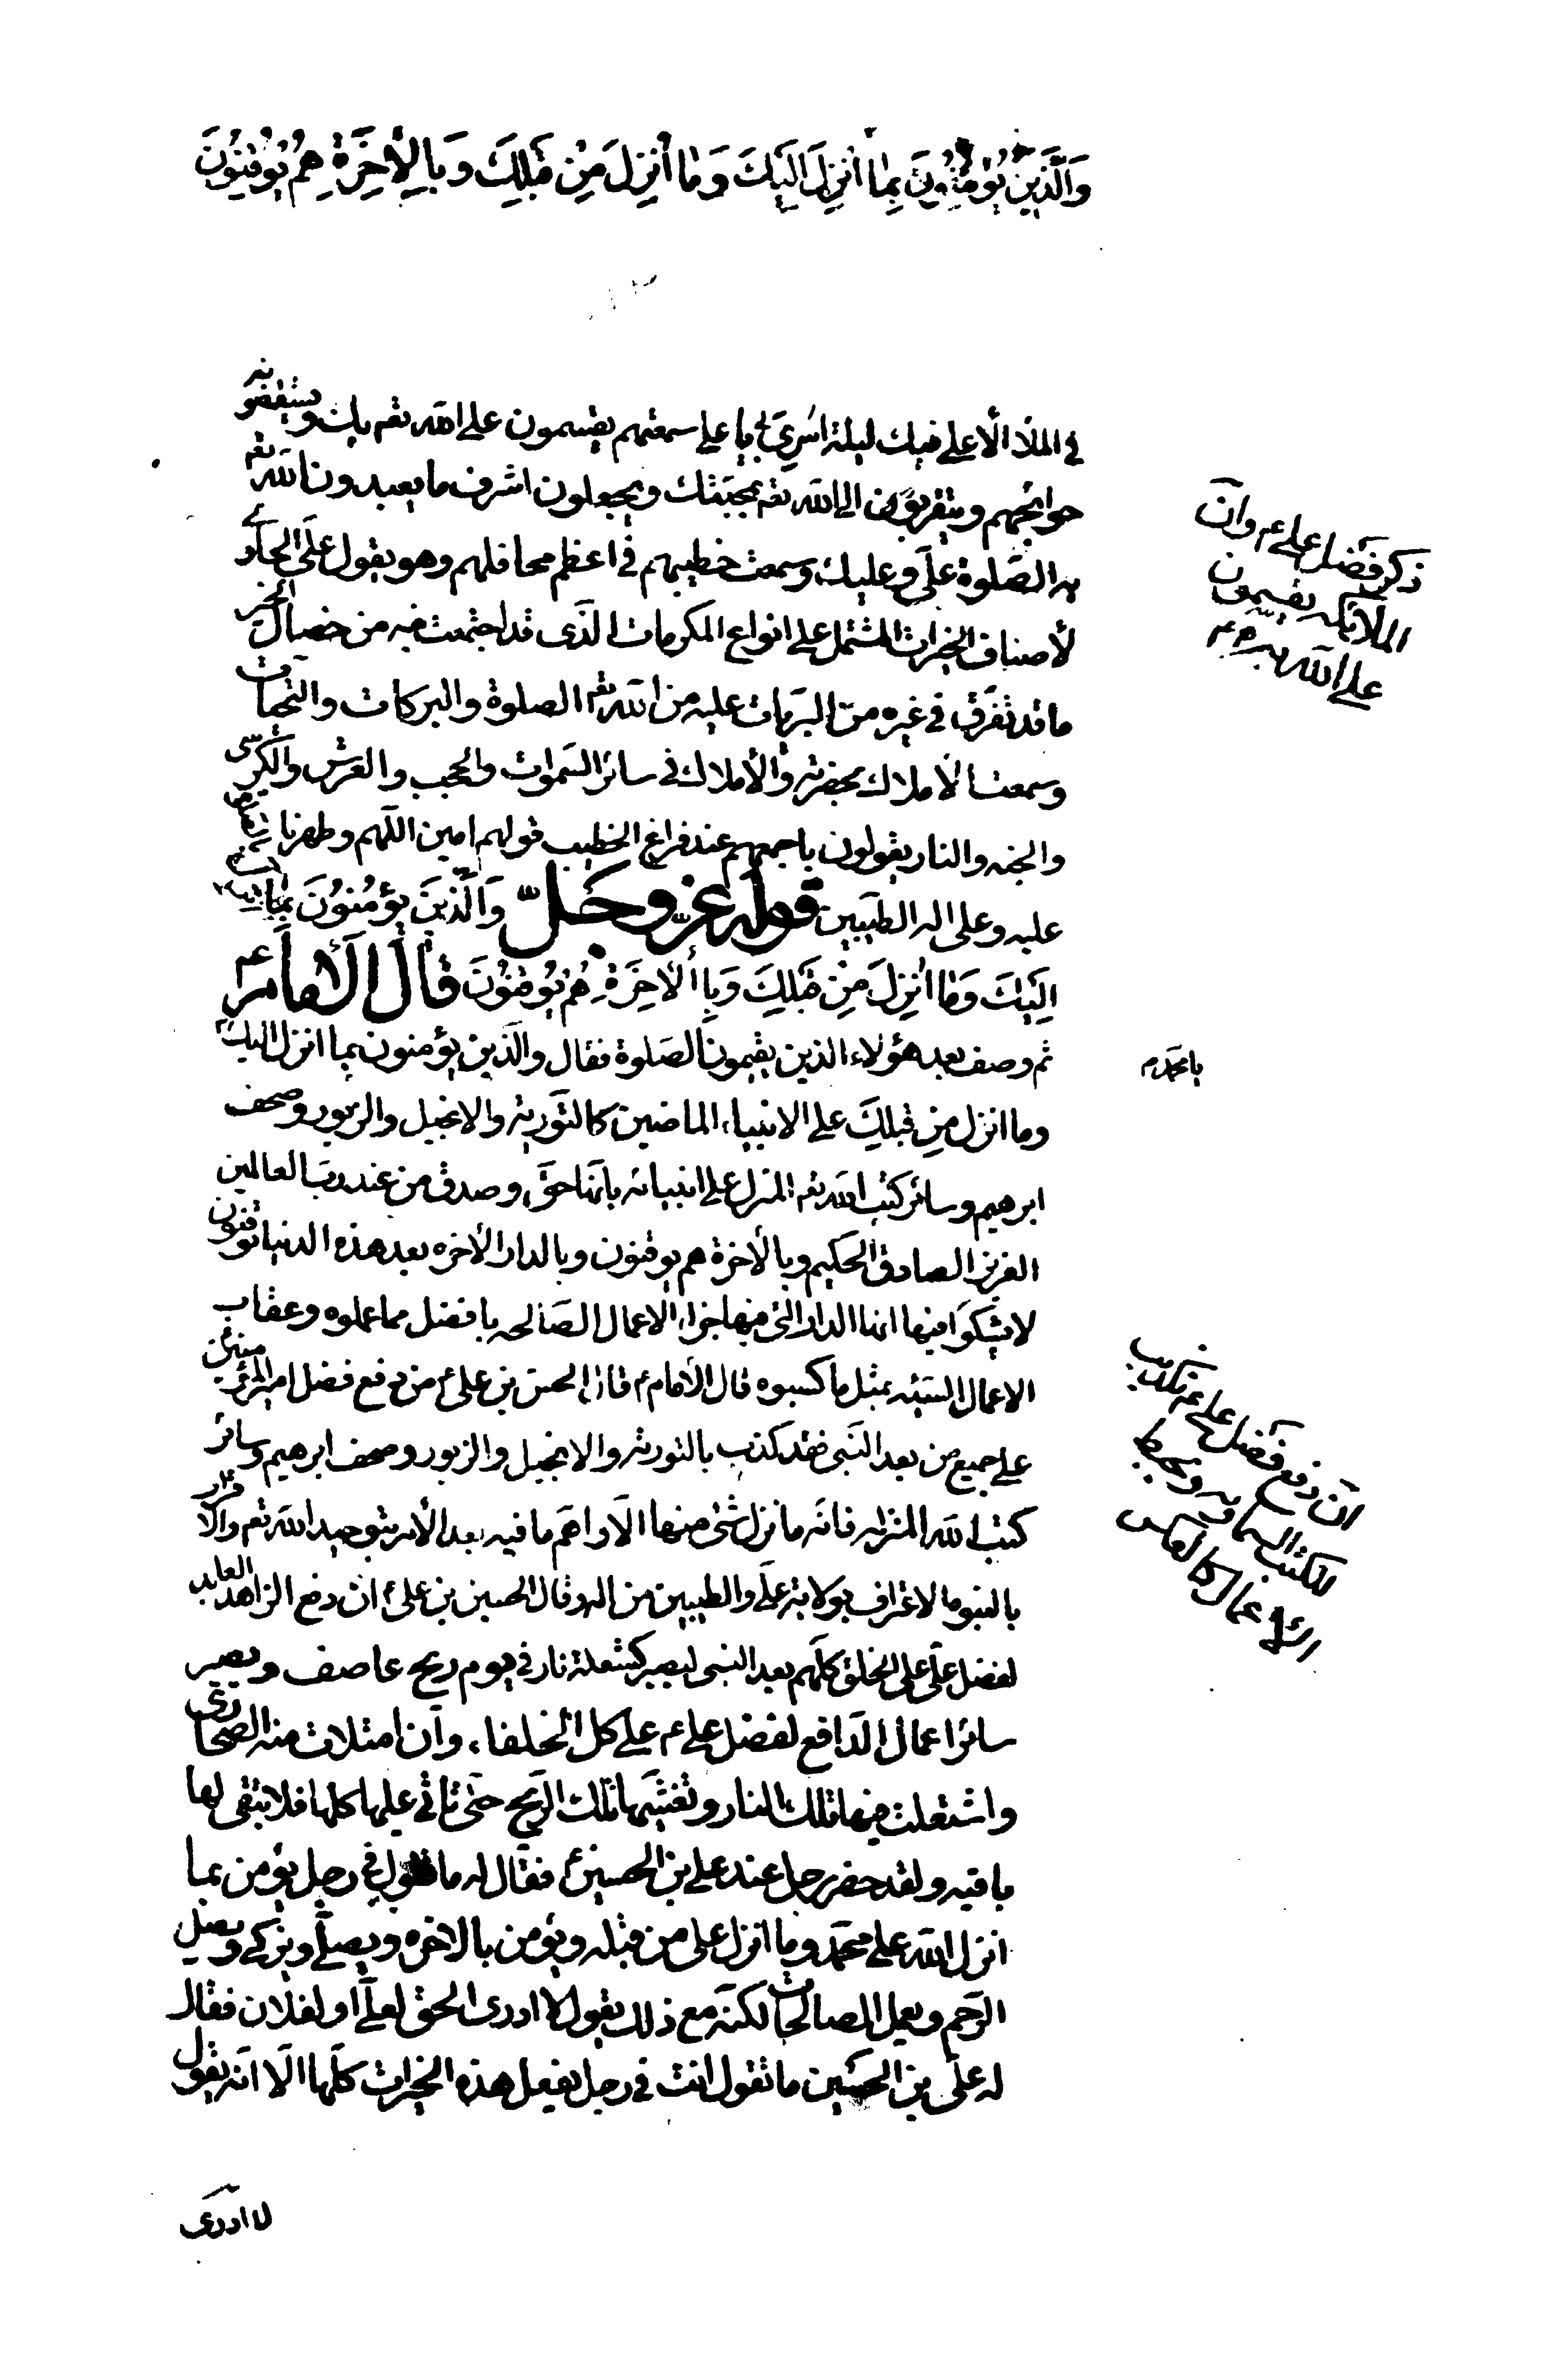 وَالَّذِينَ يُؤْمِنُونَ بِمَا أُنْزِلَ إِلَيْكَ وَمَا أُنْزِلَ مِنْ قَبْلِكَ وَبِالْأَخِرَةِ هُمْ يُوقِنُونَ
في الملأ الأعلى فيك ليلة اسري بي يا علي سمعتهم يقسمون على الله تعم بك ويستقضونه
حوائجهم ويتقربون الى الله تعم بمحبتك ويجعلون اشرف ما يعبدون الله تعم
به الصلوة علَّى وعليك وسمعت خطيبهم في اعظم محافلهم وهو يقول علَى الحاوي
لأصناف الخيرات المشتمل على انواع المكرمات الذي قد اجتمعت فيه من خصال الخير
ما قد تفرق في غيره من البريات عليه من الله تعم الصلوة والبركات والتحيات
وسمعت الأملاك بحضرته والأملاك في سائر السموات والحجب والعرش والكرسي
والجنه والنار يقولون باجمعهم عند فراغ الخطيب قولهم امين اللهم وطهرنا
عليه وعلى اله الطيبين قوله عز وجلّ وَالَّذِينَ يُؤْمِنُونَ بِمَا
اِلَيْكَ وَمَا اُنْزِلَ مِنْ قَبْلِكَ وَبِالأخِرَةِ هُمْ يُوقِنُونَ قال الأمام ع
ثم وصف بعد هؤلاء الذين يقيمون الصلوة فقال والذين يؤمنون بما انزل اليك
يا محمد
وما انزل من قبلك على الانبياء الماضين كالتورية والانجيل والزبور وصحف
ابرهيم وسائر كتب الله تعم المنزل على انبيائه بانها حق وصدق من عند رب العالمين
العزيز الصادق الحكيم وبالأخرة هم يوقنون وبالدار الأخره بعد هذه الدنيا يوقنون
لا يشكوا فيها انها الدار التي فيها جزاء الاعمال الصالحه بافضل مما عملوه وعقاب
الاعمال السيئه بمثل ما كسبوه قال الأمام ع قال الحسن بن علي ع من دفع فضل امير المؤمنين
على جميع من بعد النبي فقد كذب بالتورية والانجيل والزبور وصحف ابرهيم وسائر
كتب الله المنزله فانه ما نزل شئ منها الّا واهم ما فيه بعد الأمر بتوحيد الله تعم والاقرار
بالنبوه الاعتراف بولاية علي والطيبين من اله وقال الحسين بن علي ع ان دفع الزاهد العابد
لفضل علي على الخلق كلهم بعد النبي ليصير كشعلة نار في يوم ريح عاصف ويصير
سائر اعمال الدافع لفضل علي ع على كل الخلفاء وان امتلات منه الصحاري
واشتعلت فيها تلك النار وتغشيها تلك الريح حتى تاتي عليها كلها فلا يبقى لها
باقيه ولقد حضر رجل عند علي بن الحسين ع فقال له ما تقول في رجل يؤمن بما
انزل الله على محمد وما انزل على من قبله ويؤمن بالاخره ويصلّي ويزكي ويصل
الرحم ويعمل الصالحات لكنه مع ذلك يقول لا ادرى الحق لعلّي او لفلان فقال
له علي بن الحسين ما تقول انت في رجل يفعل هذه الخيرات كلها الّا انه يقول
لا ادرى
ذكر فضل علي ع وان
الملائكه يقسمون
على الله به ع
ان دفع فضل علي ع تكذيب
للكتب السماويه ومحبط